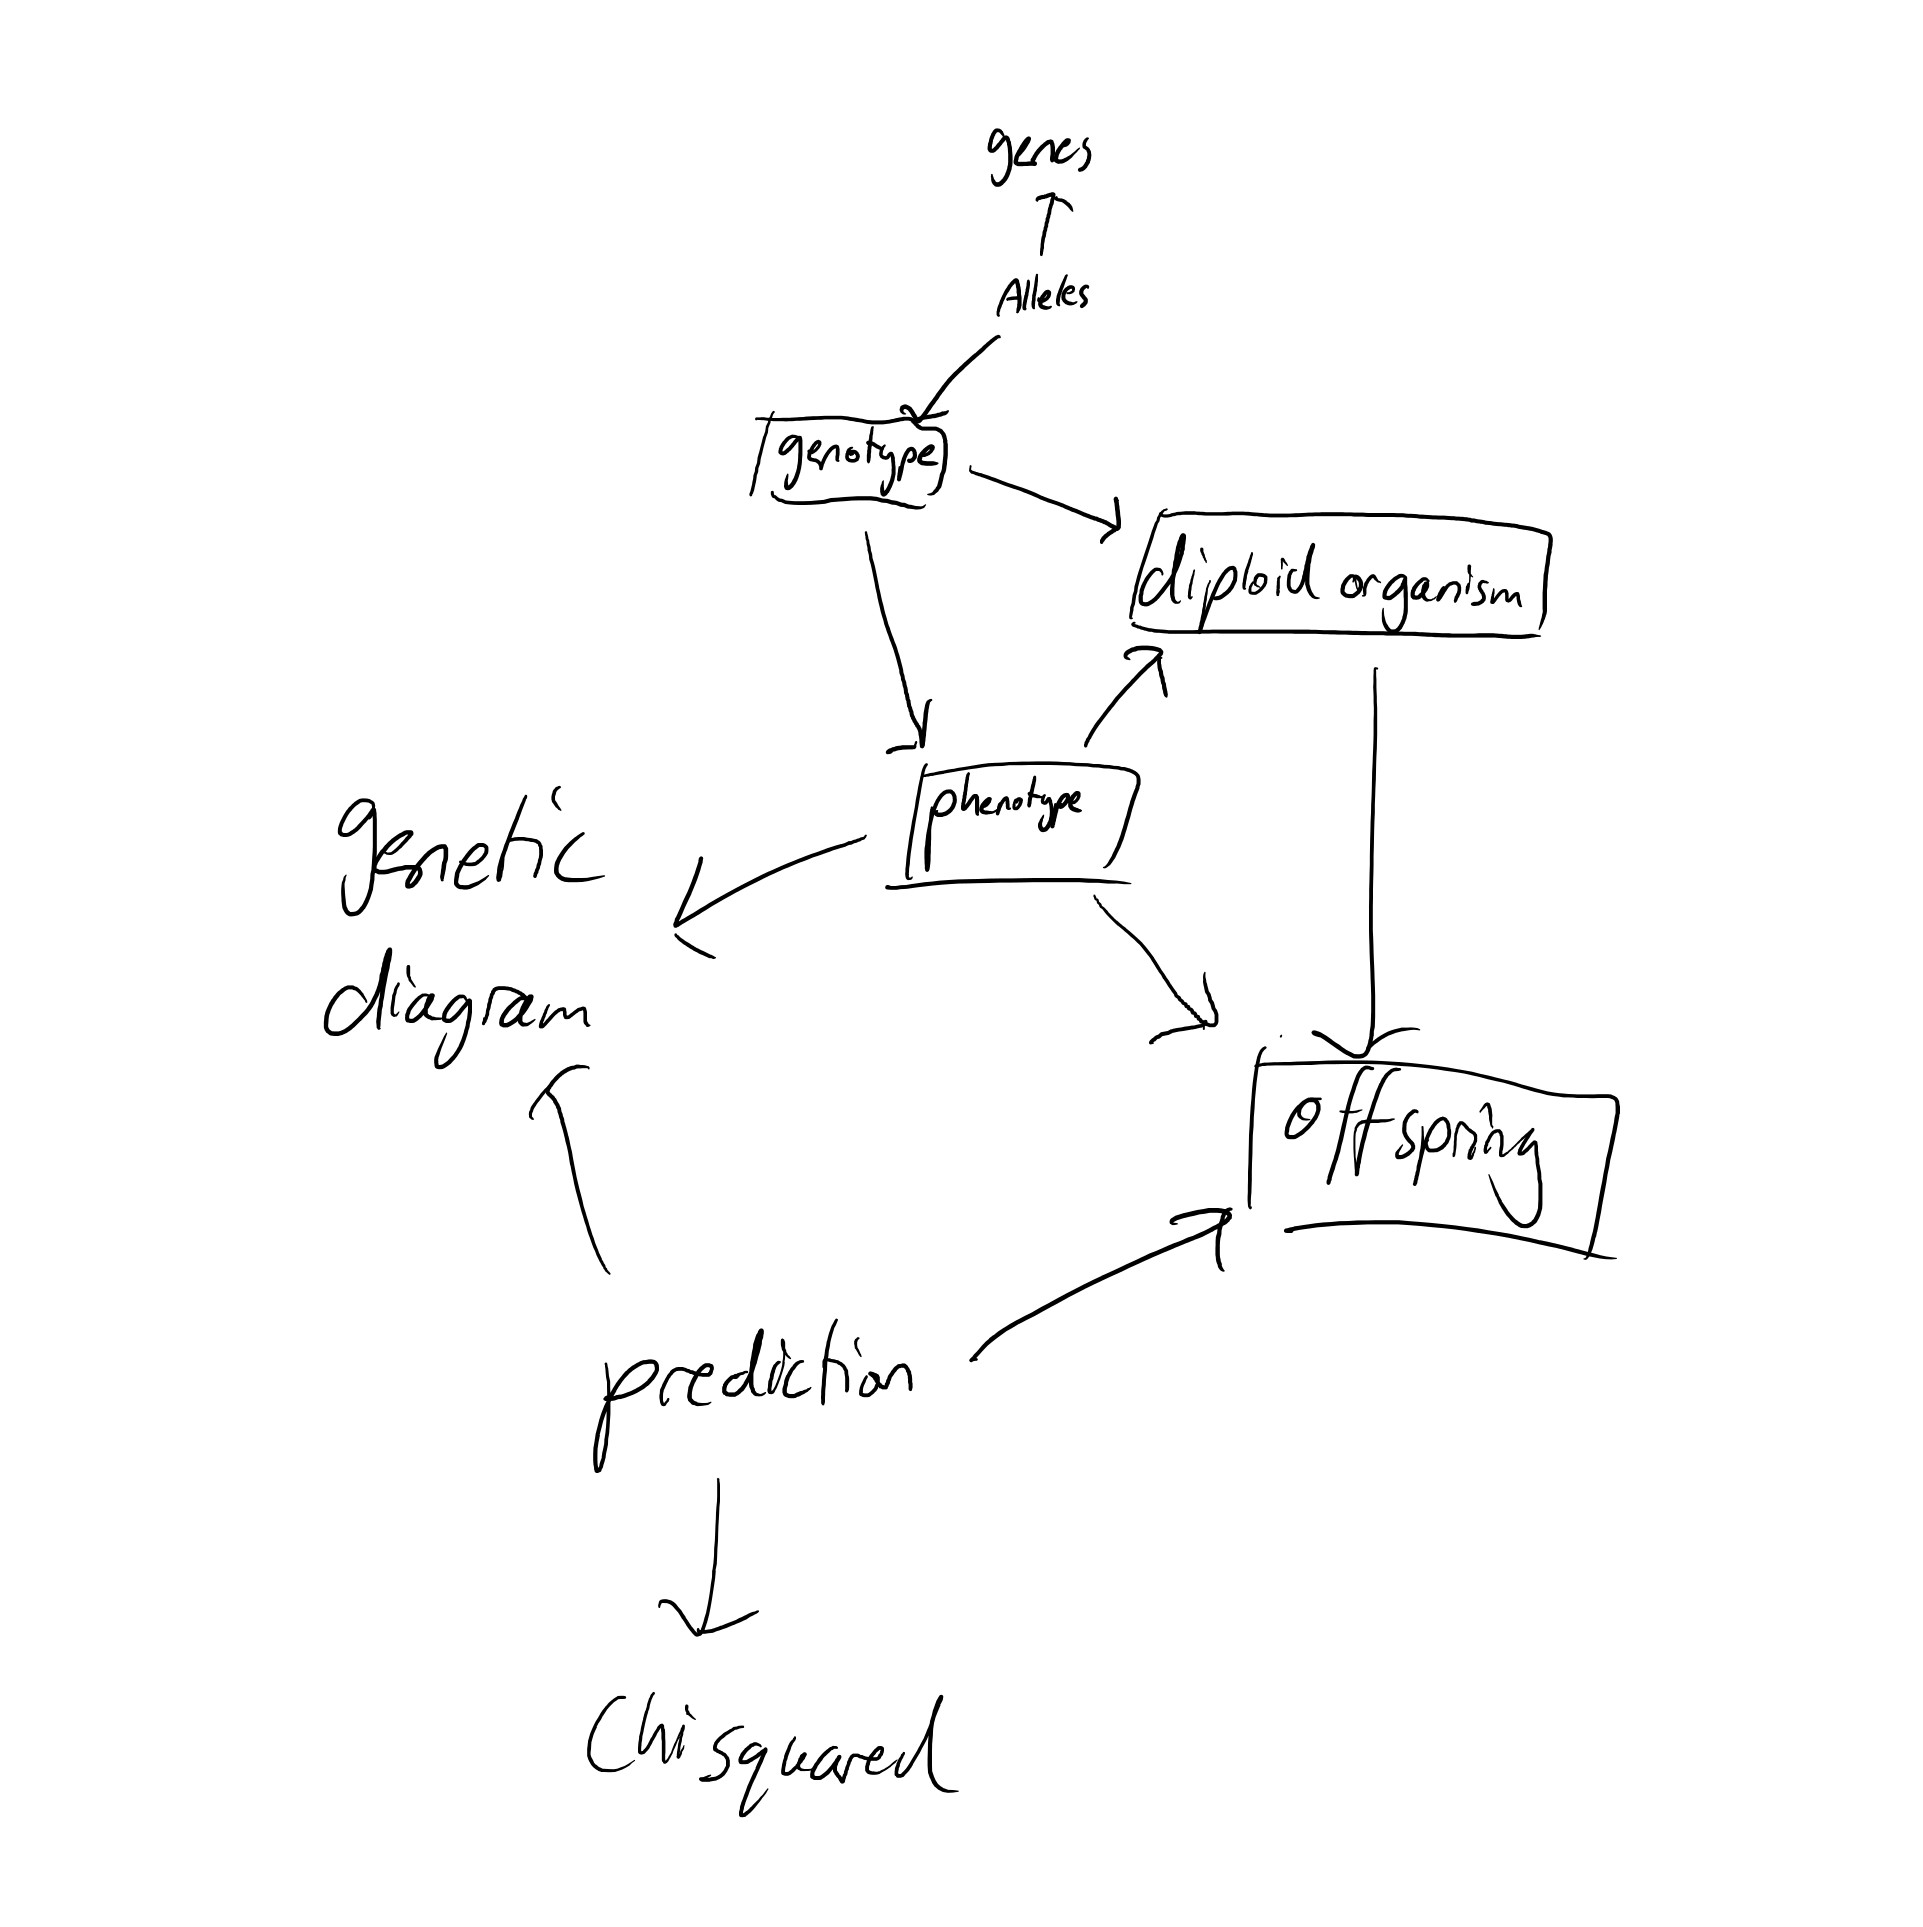 genes
Alleles
genotype
diploid organism
phenotype
genetic
diagram
offspring
prediction
Chi squared